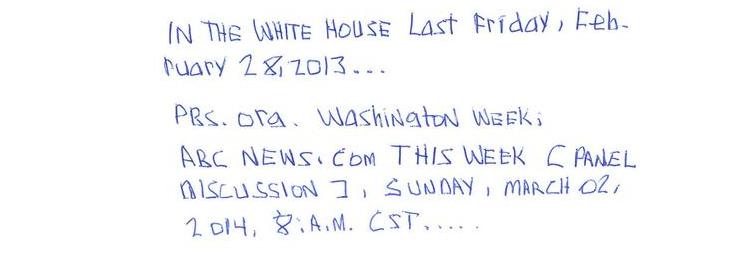 IN THE WHITE HOUSE Last Friday, Feb-
ruary 28, 2013...
PBS. org. Washington WEEK;
ABC NEWS. COM THIS WEEK [ PANEL
DISCUSSION ], SUNDAY, MARCH 02,
2014, 8:A.M. CST.....